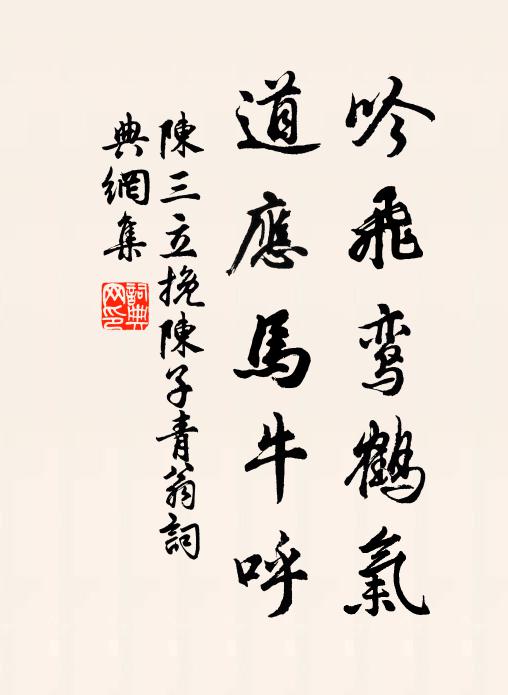 吟飛鸾鶴氣
道應馬牛呼
陳三立挽陳子青翁詞
典網集
詞典網印